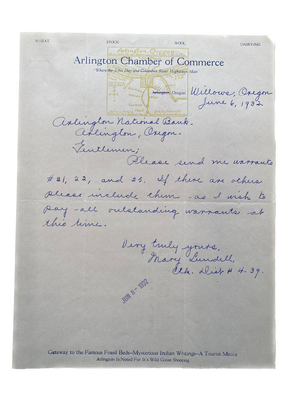 WHEAT STOCK WOOL DIAMONDS
Arlington Chamber of Commerce
Where the John Day and Columbia River Highways Meet
Arlington, Oregon
Willows, Oregon
June 6, 1932
Arlington National Bank.
Arlington, Oregon.
Gentlemen;
Please send me warrants
#21, 22, and 25. If there are others
please include them as I wish to
pay all outstanding warrants at
this time.
Very truly yours,
Mary Lundell
Clk. Dist # 4-39.
JUN 8 - 1932
Gateway to the Famous Fossil Beds—Mysterious Indian Writings—A Tourist Mecca
Arlington Is Noted For It's Wild Goose Shooting